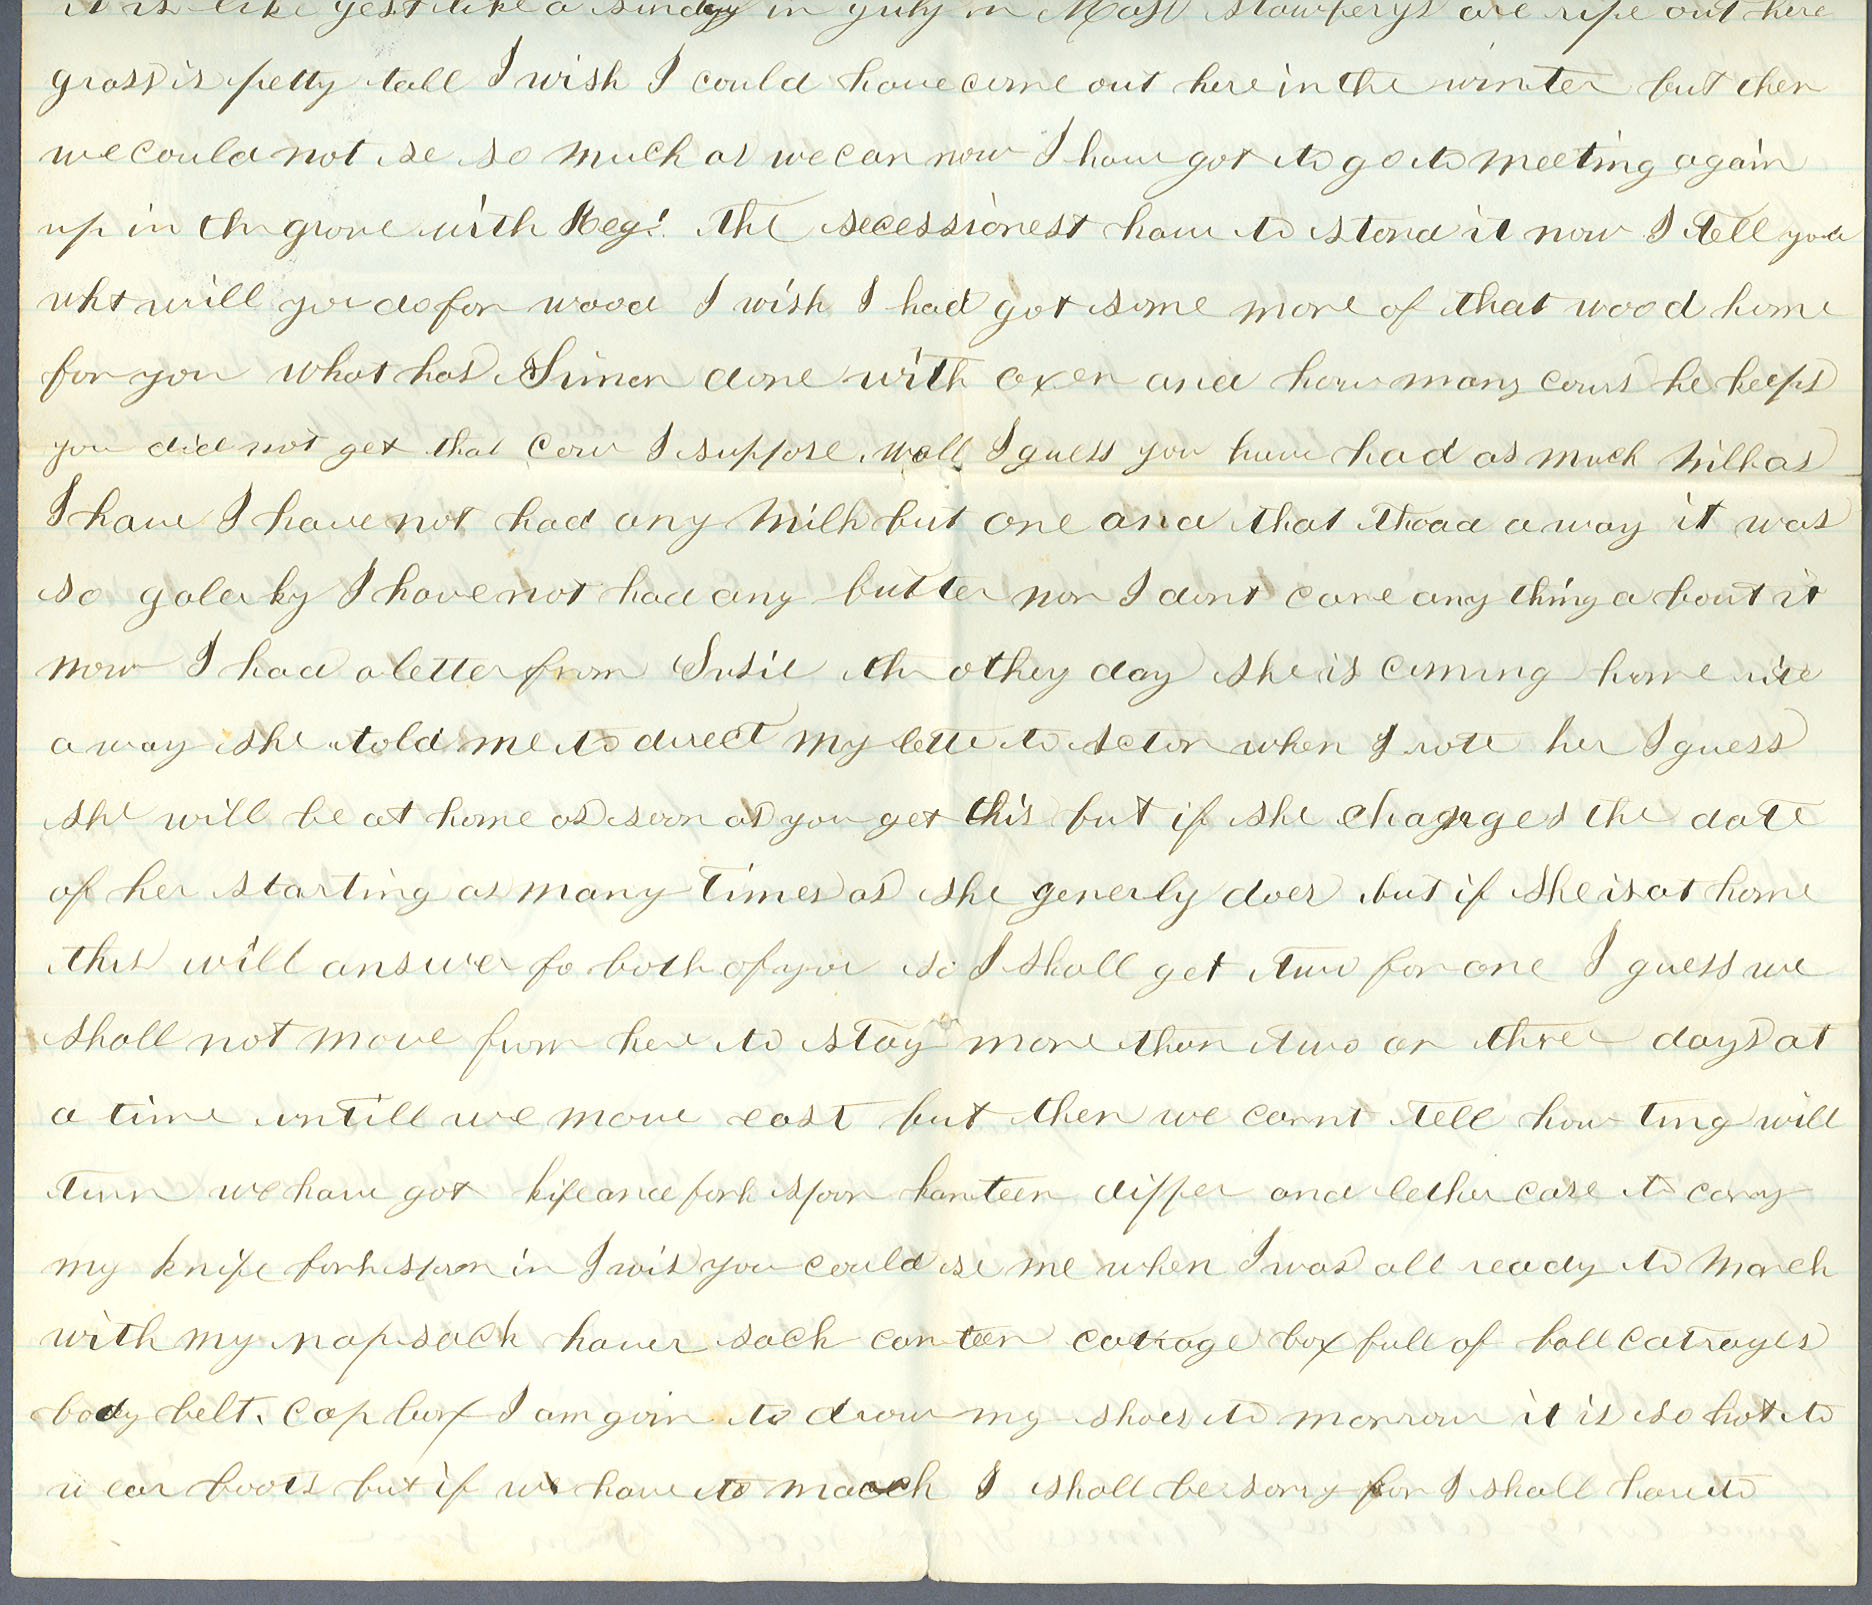 it is like yest like a sunday in july in Mass stawberys are ripe out here
grass is petty tall I wish I could have come out here in the winter but then
we could not se so much as we can now I have got to go to meeting again
up in the grove with Regt. the secessionest have to stand it now I tell you
wht will you do for wood I wish I had got some more of that wood home
for you what has Simon done with oxen and how many cows he keeps
you did not get that cow I suppose well I guess you have had as much milk as
I have I have not had any milk but one and that thoad away it was
so galerky I have not had any butter nor I dont care any thing a bout it
now I had a letter from Susie the othey day she is coming home rite
a way she told me to direct my lette to Acton when I rote her I guess
she will be at home as soon as you get this but if she changes the date
of her starting as many times as she generly does but if she is at home
this will answer fo both of you so I shall get two for one I guess we
shall not move from here to stay more than two or three days at
a time untill we move east but then we carnt tell how ting will
turn we have got kife and fork spoon kanteen dipper and lether case to cary
my knife fork spoon in I wis you could se me when I was all ready to march
with my napsack haver sack canteen catrage box full of ball catrages
body belt. cap box I am goin to draw my shoes to morrow it is so hot to
wear boots but if we have to march I shall be sorry for I shall have to